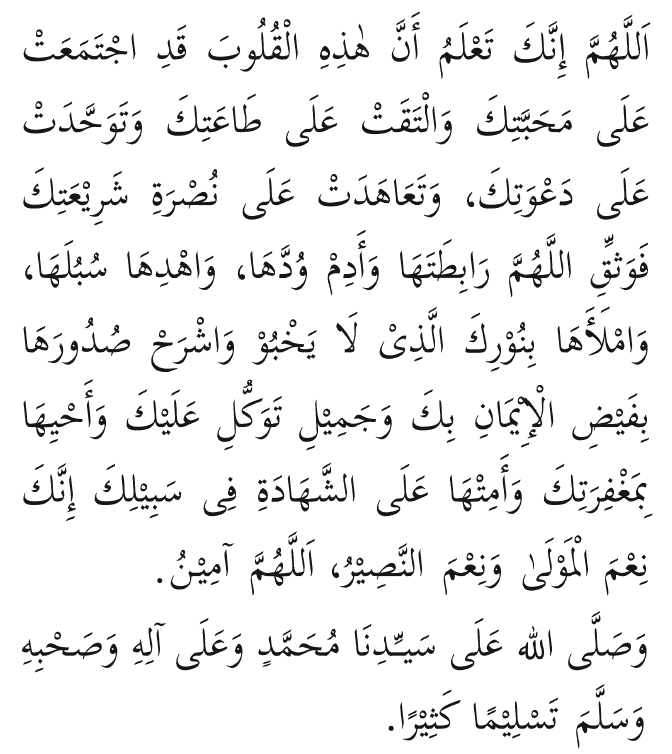 اَللَّهُمَّ إِنَّكَ تَعْلَمُ أَنَّ هٰذِهِ الْقُلُوبَ قَدِ اجْتَمَعَتْ
عَلَى مَحَبَّتِكَ وَالْتَقَتْ عَلَى طَاعَتِكَ وَتَوَحَّدَتْ
عَلَى دَعْوَتِكَ، وَتَعَاهَدَتْ عَلَى نُصْرَةِ شَرِيْعَتِكَ
فَوَثِّقِ اللَّهُمَّ رَابِطَتَهَا وَأَدِمْ وُدَّهَا، وَاهْدِهَا سُبُلَهَا،
وَامْلَأَهَا بِنُوْرِكَ الَّذِىْ لَا يَخْبُوْ وَاشْرَحْ صُدُورَهَا
بِفَيْضِ الْإِيْمَانِ بِكَ وَجَمِيْلِ تَوَكُّلِ عَلَيْكَ وَأَحْيِهَا
بِمَغْفِرَتِكَ وَأَمِتْهَا عَلَى الشَّهَادَةِ فِى سَبِيْلِكَ إِنَّكَ
نِعْمَ الْمَوْلَىٰ وَنِعْمَ النَّصِيْرُ، اَللَّهُمَّ آمِيْنُ.
وَصَلَّى الله عَلَى سَيِّدِنَا مُحَمَّدٍ وَعَلَى آلِهِ وَصَحْبِهِ
وَسَلَّمَ تَسْلِيْمًا كَثِيْرًا.